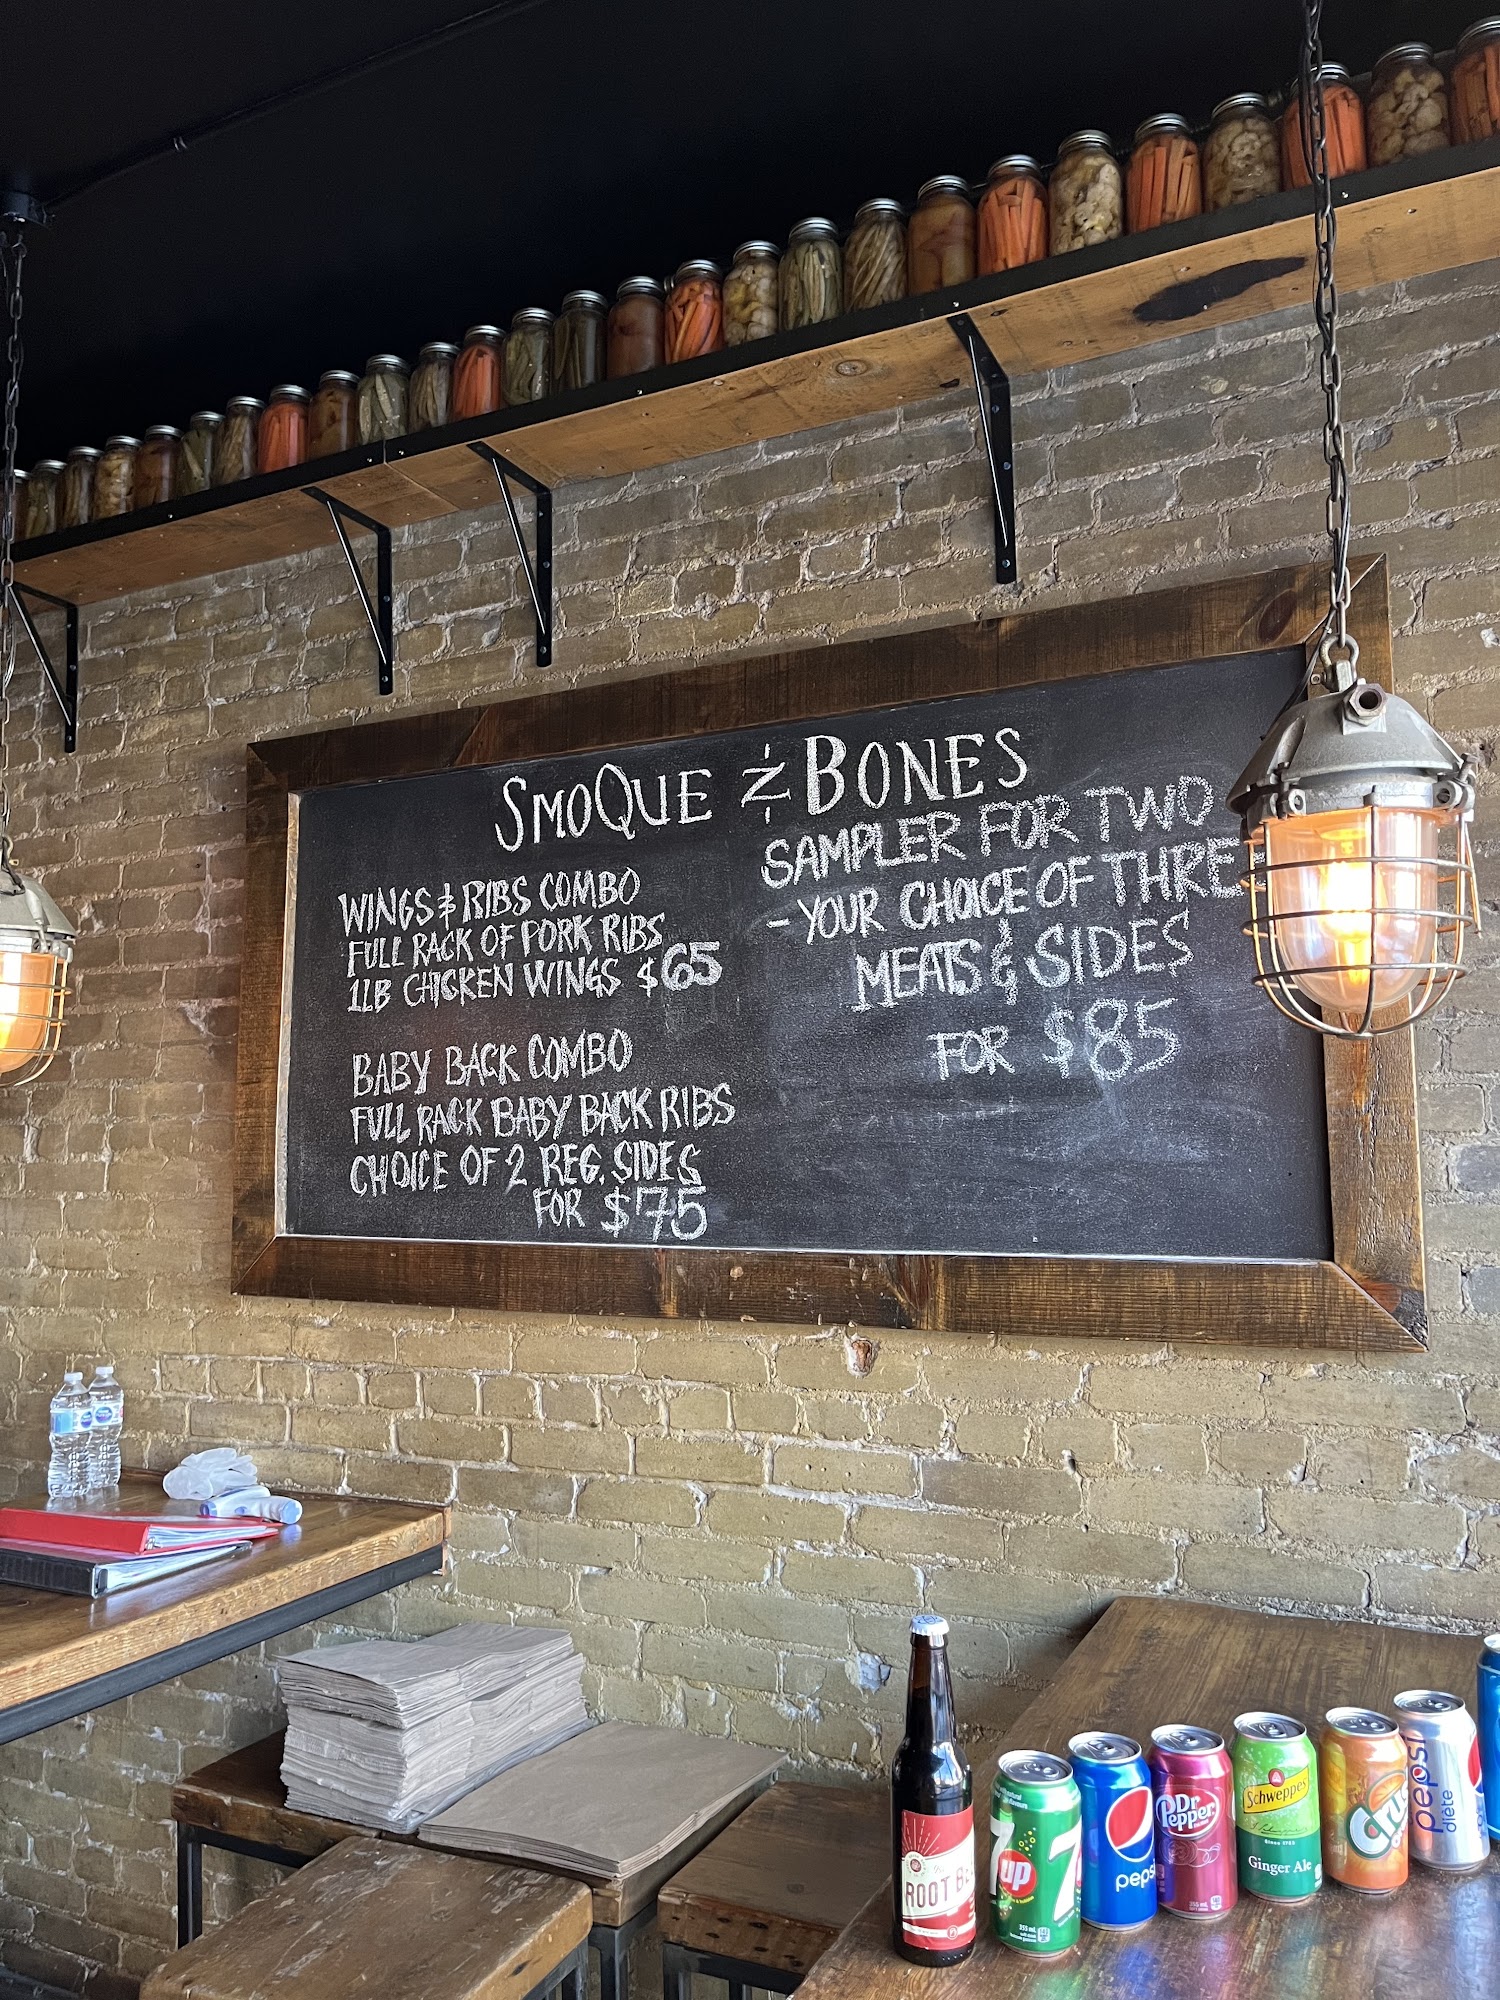 SMOQUE N BONES
WINGS & RIBS COMBO
FULL RACK OF PORK RIBS
1LB CHICKEN WINGS $65
BABY BACK COMBO
FULL RACK BABY BACK RIBS
CHOICE OF 2 REG. SIDES
FOR $75
SAMPLER FOR TWO
- YOUR CHOICE OF THREE
MEATS & SIDES
FOR $85
ROOT
7up
7
355 mL
pepsi
Dr Pepper
355 mL
Schweppes
Since 1783
Ginger Ale
Crush
pepsi
diète